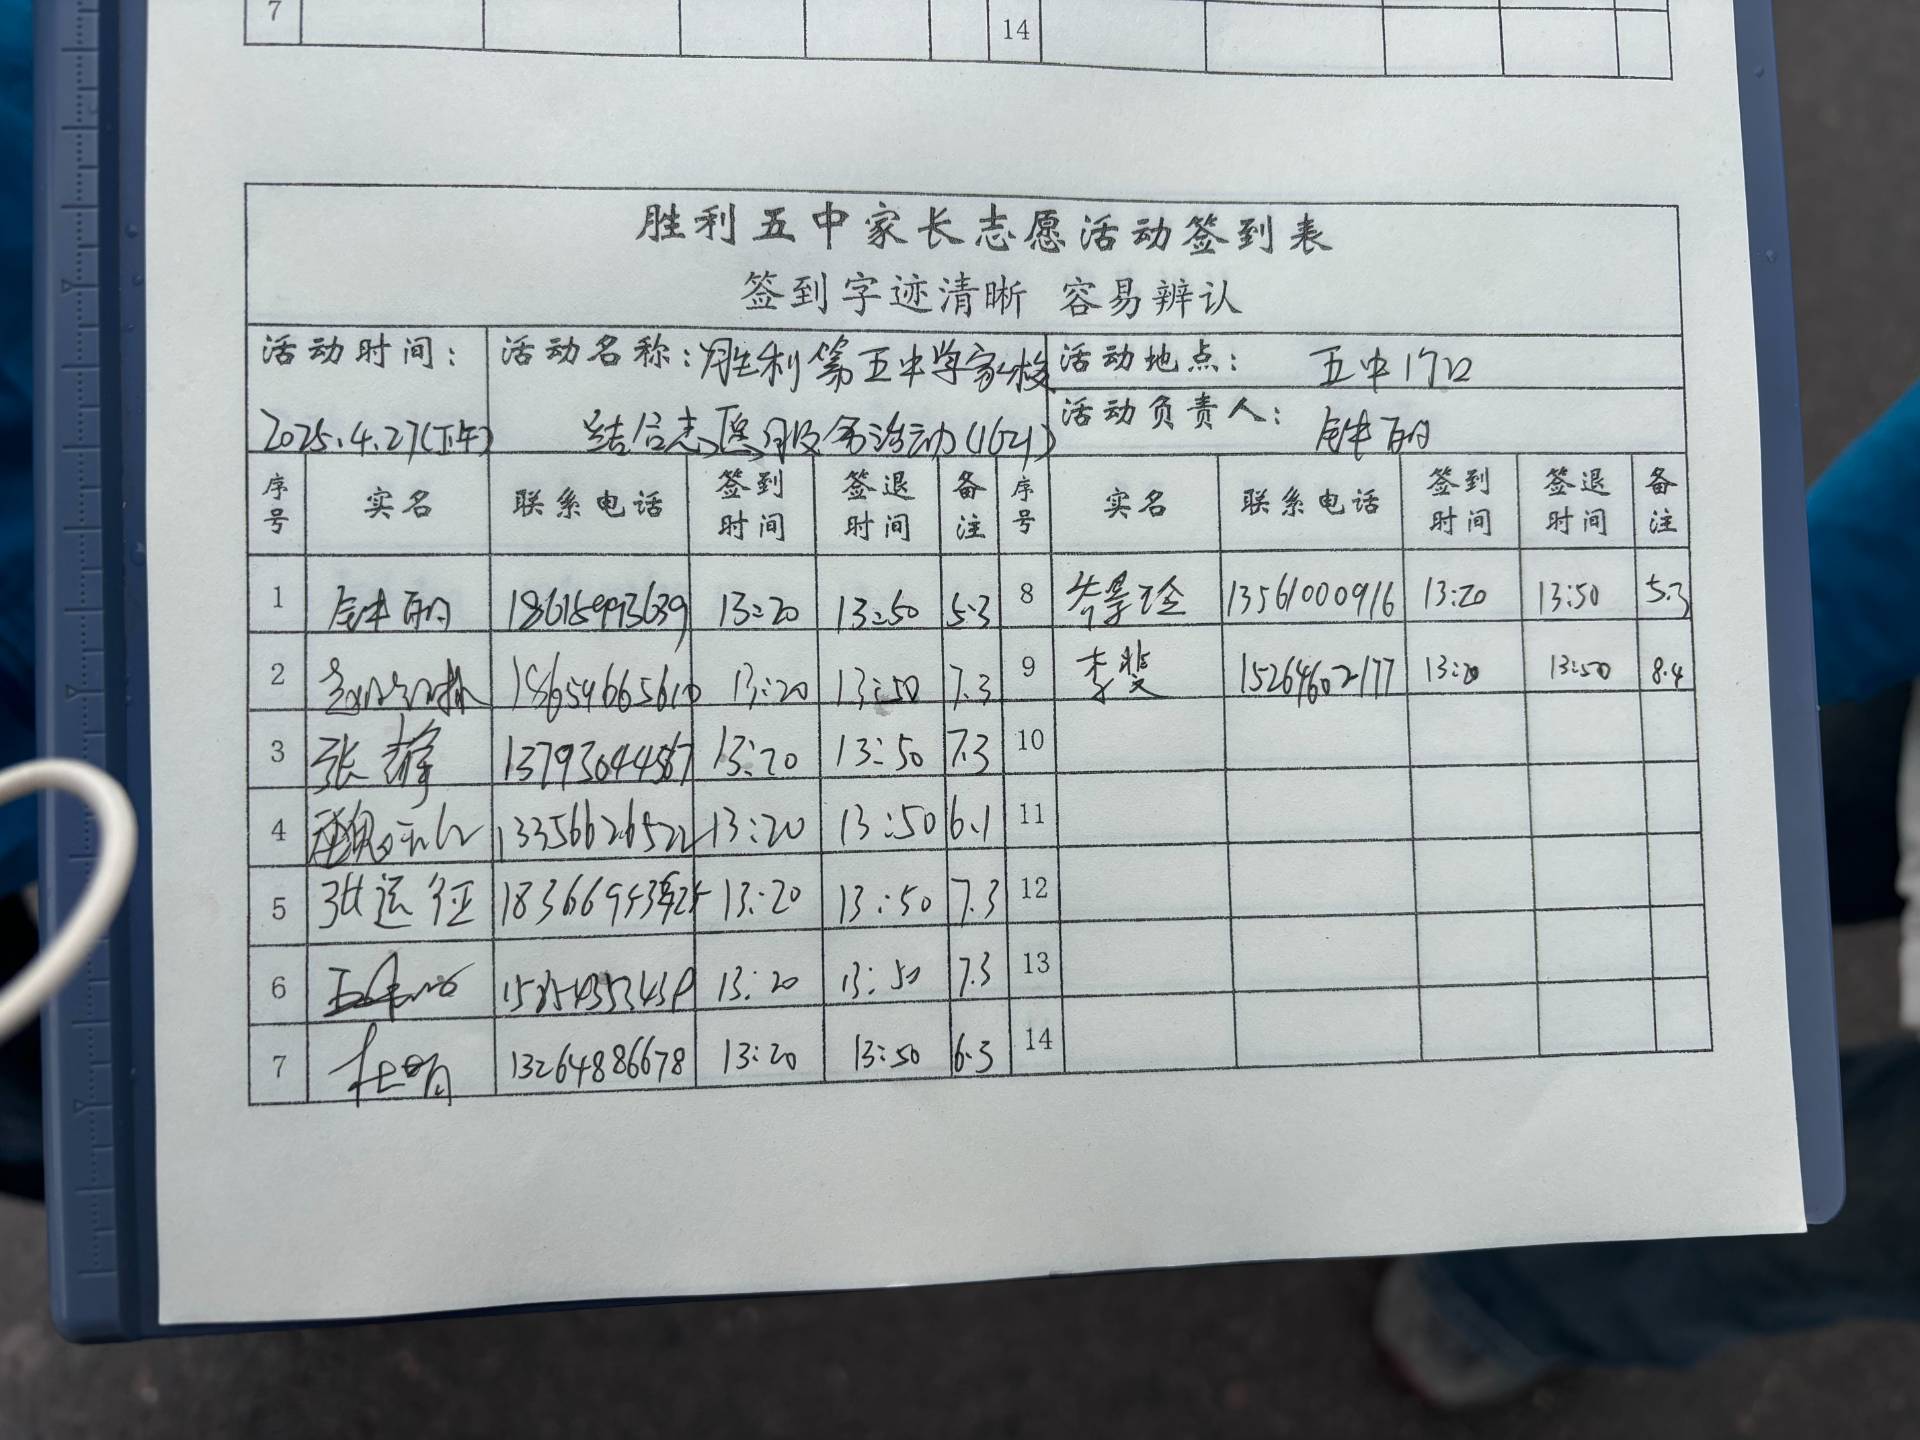 7 14
胜利五中家长志愿活动签到表
签到字迹清晰 容易辨认
活动时间: 活动名称:胜利第五中学家校 活动地点: 五中门口
2025.4.27(下午) 结合志愿服务活动(1621) 活动负责人:
序号 实名 联系电话 签到时间 签退时间 备注 序号 实名 联系电话 签到时间 签退时间 备注
1 13:20 13:50 5.3 8 13561000916 13:20 13:50 5.3
2 18659665610 13:20 13:50 7.3 9 李斐 15264602177 13:20 13:50 8.4
3 张静 13:20 13:50 7.3 10
4 13356626522 13:20 13:50 6.1 11
5 张运征 13:20 13:50 7.3 12
6 13:20 13:50 7.3 13
7 杜明 13264886678 13:20 13:50 6.3 14